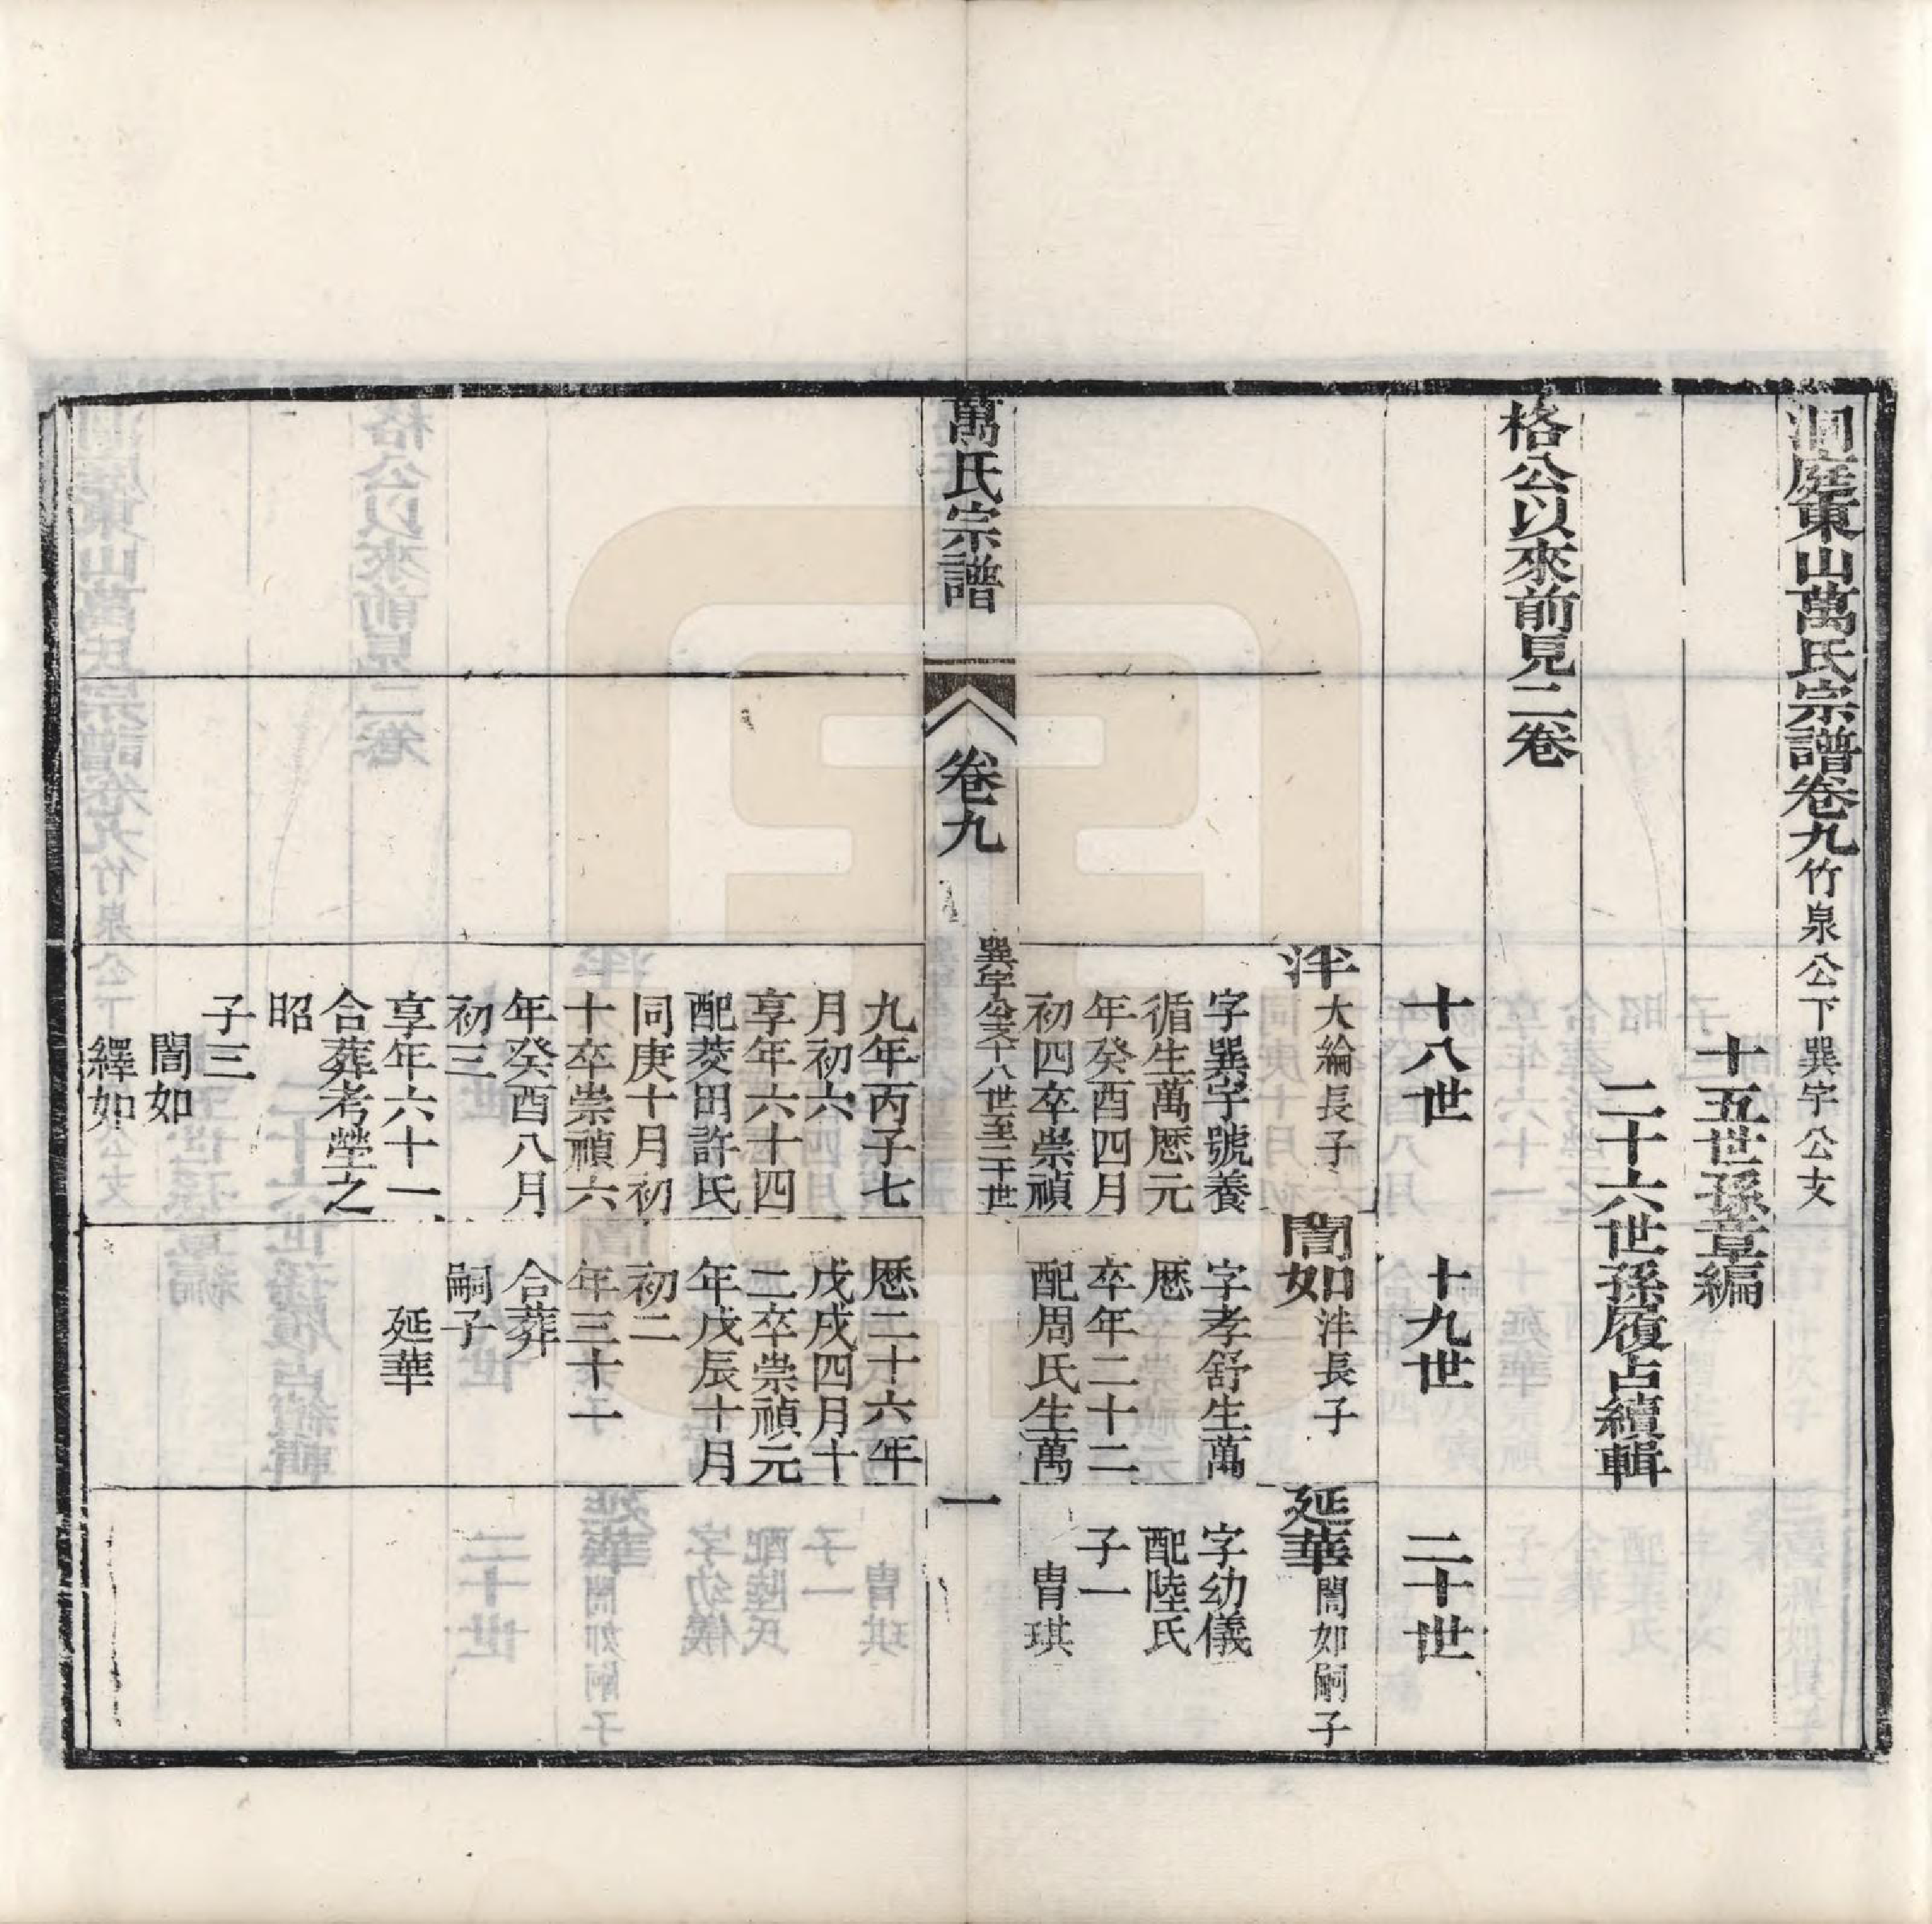 洞庭東山萬氏宗譜卷九竹泉公下巽宇公支
十五世孫章編
二十六世孫履占續輯
格公以來前見二卷
十八世
十九世
二十世
泮大綸長子
字巽宇號養
循生萬厯元
年癸酉四月
初四卒崇禎
九年丙子七
月初六
享年六十四
配菱田許氏
同庚十月初
十卒崇禎六
年癸酉八月
初三
享年六十一
合葬考塋之
昭
子三
誾如
繹如
誾如泮長子
字孝舒生萬
厯
卒年二十二
配周氏生萬
厯二十六年
戊戌四月十
二卒崇禎元
年戊辰十月
初二
年三十一
合葬
嗣子
延華
延華誾如嗣子
字幼儀
配陸氏
子一
胄琪
萬氏宗譜
卷九
巽宇公支十八世至二十世
一